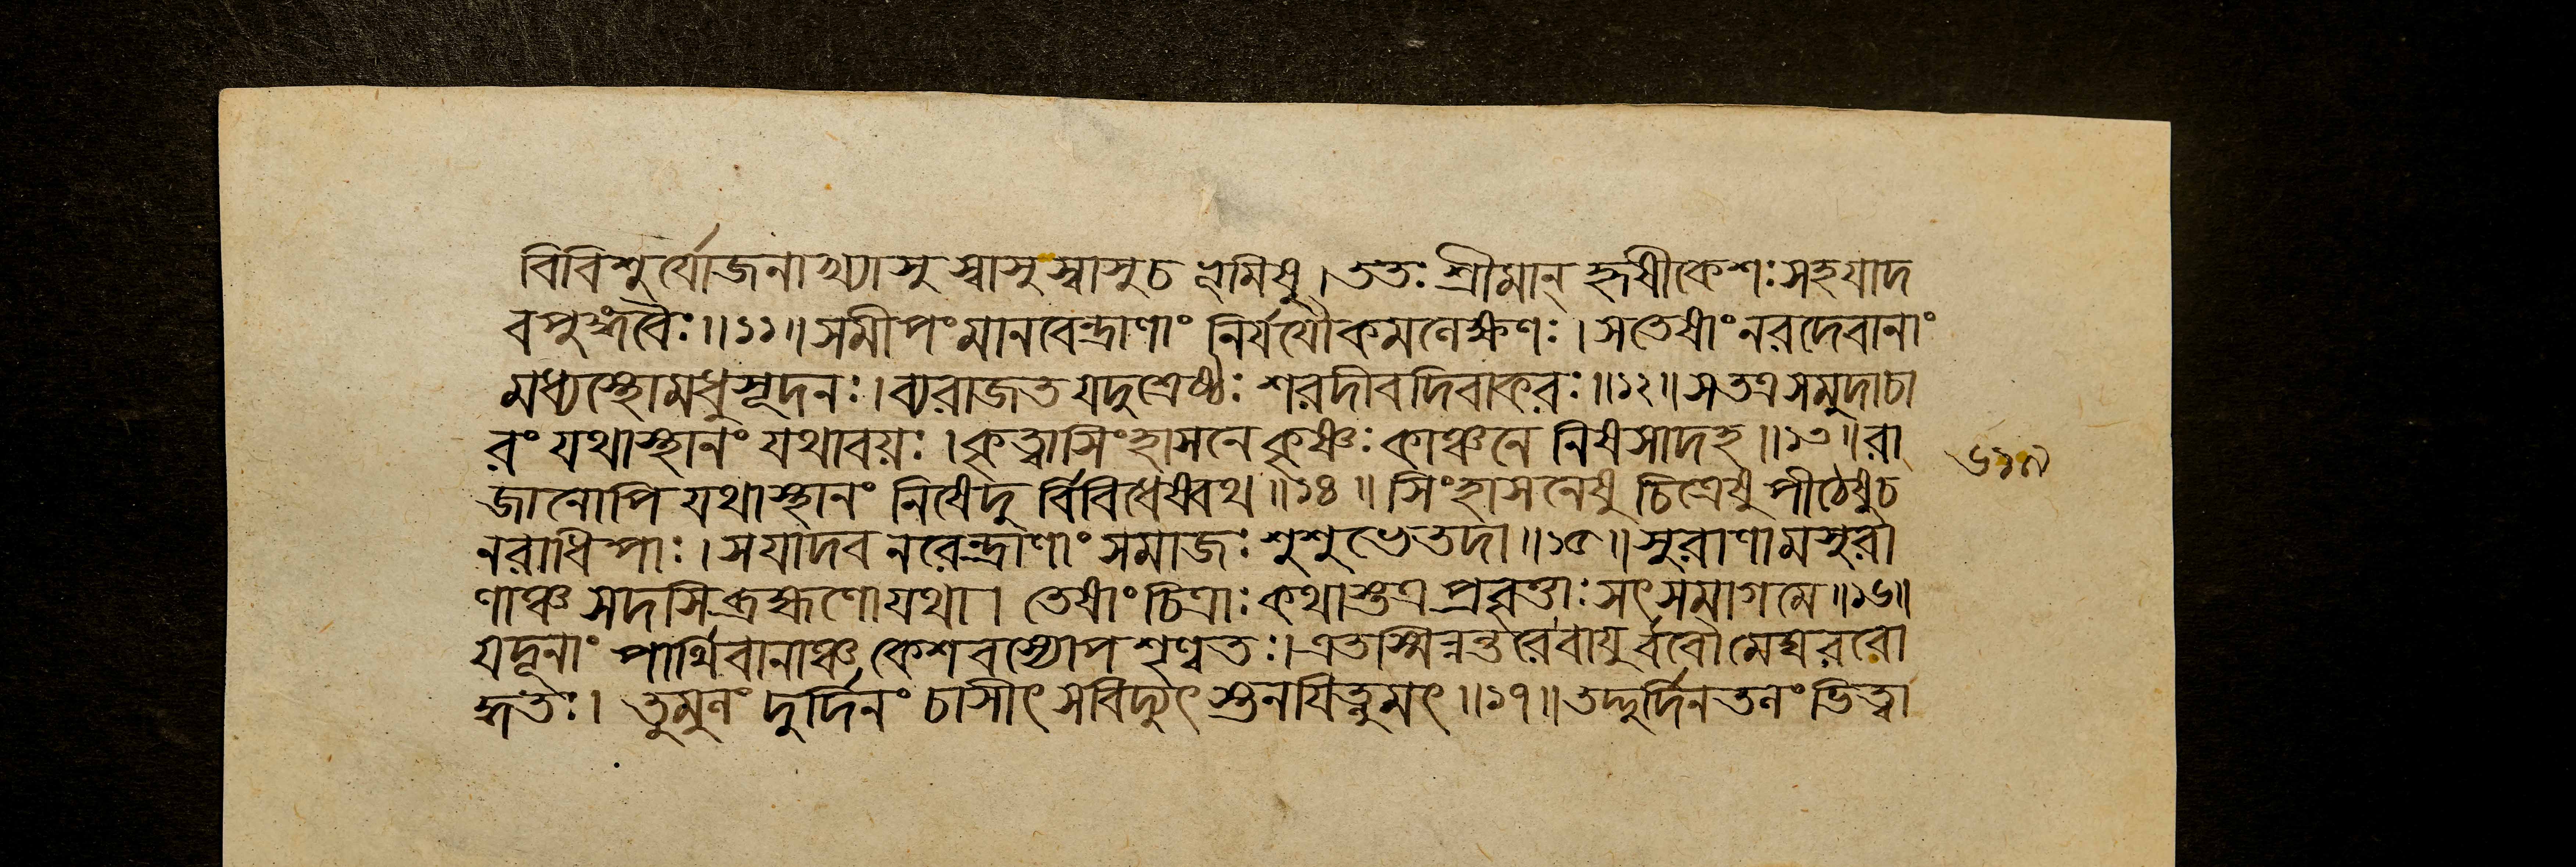 বিবিশুর্যোজনাখ্যাসু স্বাসু স্বাসুচ ভূমিষু। ততঃ শ্রীমান্ হৃষীকেশঃ সহযাদ
বপুঙ্গবৈঃ॥১১॥ সমীপং মানবেন্দ্রাণাং নির্যযৌ কমলেক্ষণঃ। সতেষাং নরদেবানাং
মধ্যস্থোমধুসূদনঃ। ব্যরাজত যদুশ্রেষ্ঠঃ শরদীবদিবাকরঃ॥১২॥ সতত্র সমুদাচা
রং যথাস্থানং যথাবয়ঃ। কৃত্বাসিংহাসনে কৃষ্ণঃ কাঞ্চনে নিষসাদহ॥১৩॥ রা
জানোপি যথাস্থানং নিষেদু র্বিবিধেষ্বথ॥১৪॥ সিংহাসনেষু চিত্রেষু পীঠেষুচ
নরাধিপাঃ। সযাদব নরেন্দ্রাণাং সমাজঃ শুশুভেতদা॥১৫॥ সুরাণামসুরা
ণাঞ্চ সদসি ব্রহ্মণোযথা। তেষাং চিত্রাঃ কথাস্তত্র প্রবৃত্তাঃ সৎসমাগমে॥১৬॥
যদূনাং পার্থিবানাঞ্চ কেশবস্যোপ শৃণ্বতঃ। এতস্মিন্নন্তরেবায়ুর্ববৌ মেঘররো
দ্ধতঃ। তুমুলং দুর্দিনং চাসীৎ সবিদ্যুৎ স্তনযিত্নুমৎ॥১৭॥ তদ্দুর্দিনতলং ভিত্বা